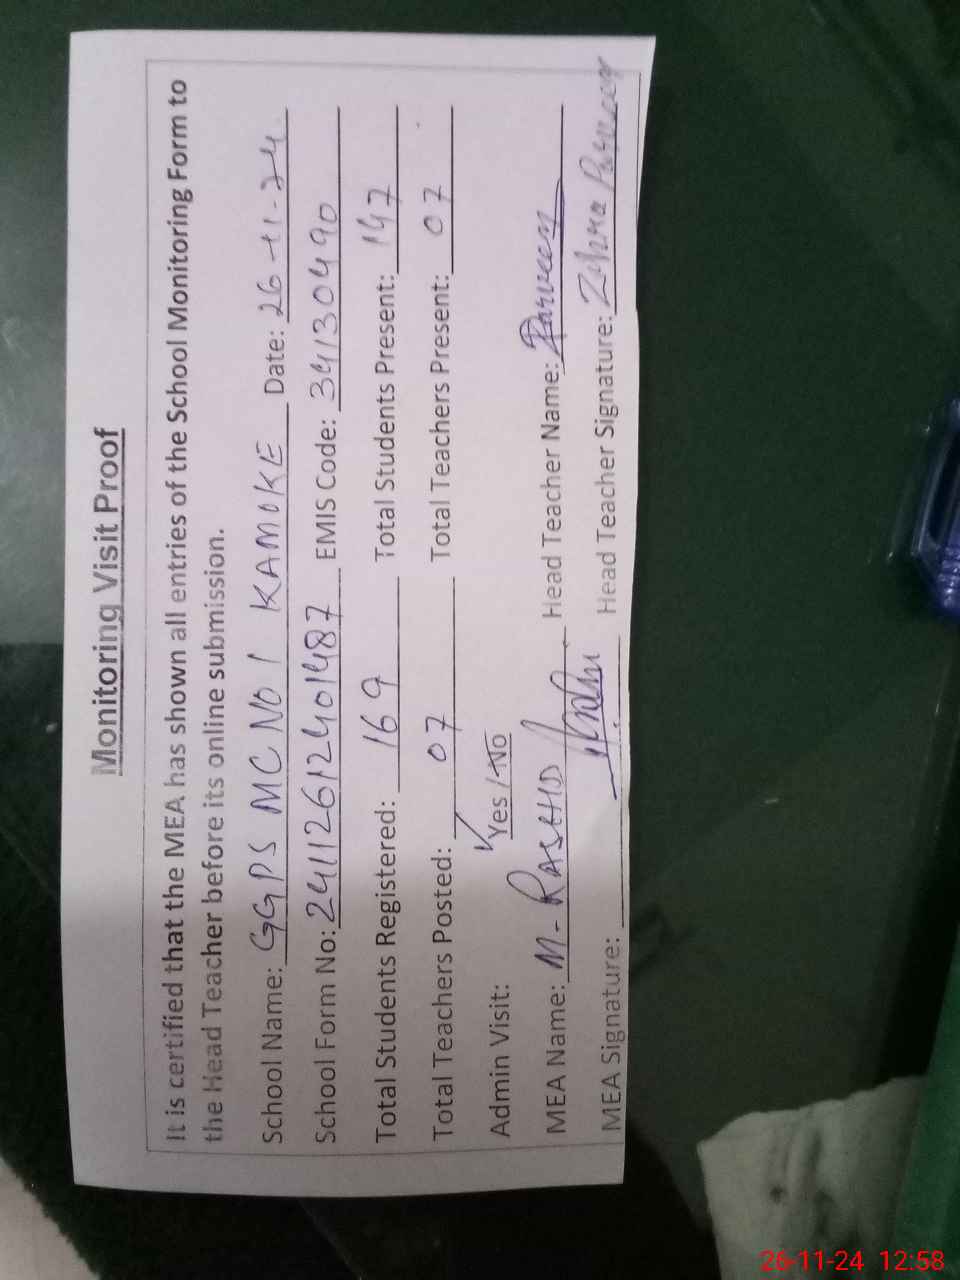 Monitoring Visit Proof
It is certified that the MEA has shown all entries of the School Monitoring Form to
the Head Teacher before its online submission.
School Name: GGPS MC NO 1 KAMOKE Date: 26-11-24
School Form No: 24112612401487 EMIS Code: 34130490
Total Students Registered: 169 Total Students Present: 147
Total Teachers Posted: 07 Total Teachers Present: 07
Admin Visit: Yes / No
MEA Name: M-RASHID Head Teacher Name:
MEA Signature: Head Teacher Signature:
26-11-24 12:58